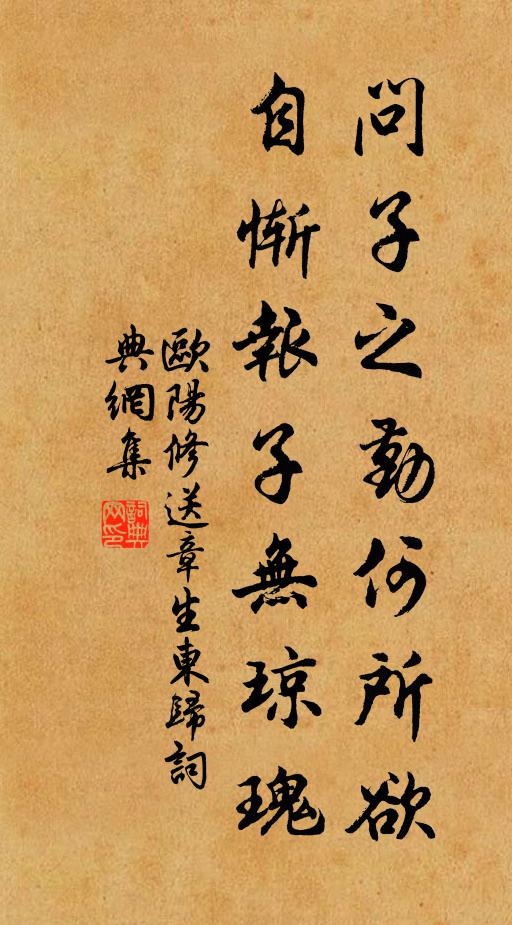 問子之勤何所欲
自慚報子無琼瑰
歐陽修送章生東歸詞
典網集
詞典网印